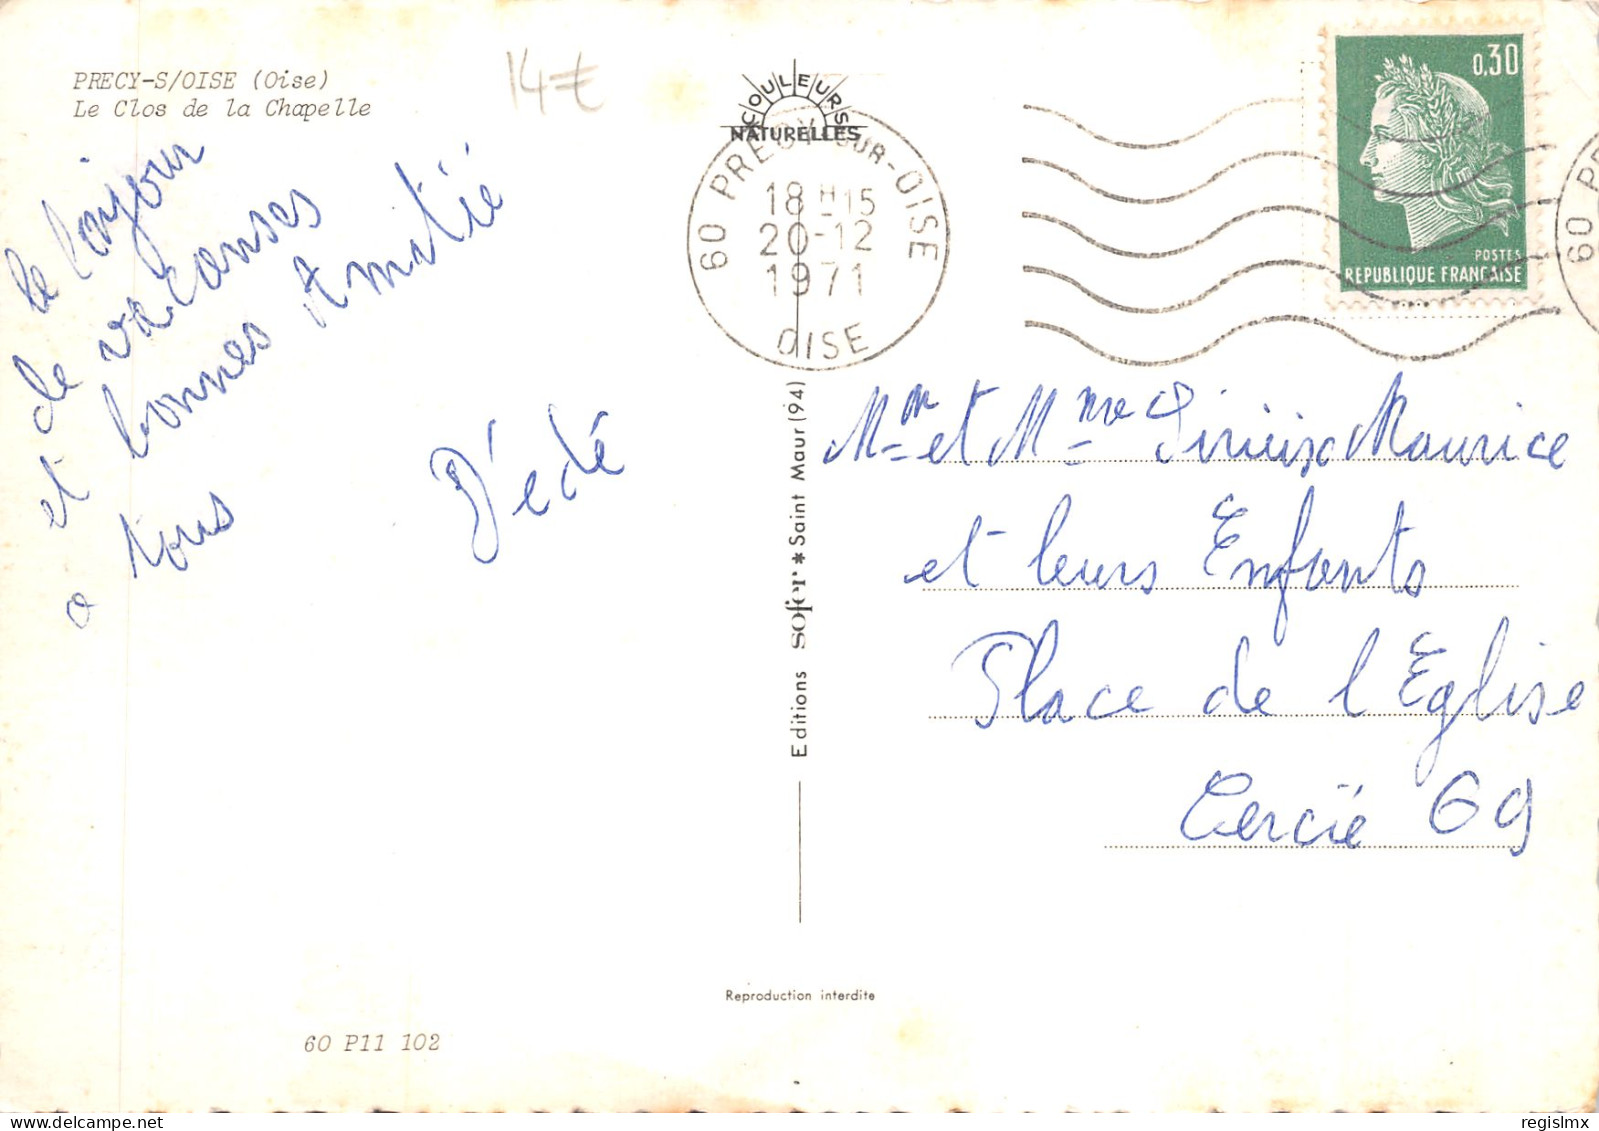 PRECY-S/OISE (Oise)
Le Clos de la Chapelle
14€
le bonjour
de vacanses
et bonnes Amitié
a tous
Dédé
COULEURS
NATURELLES
60 PRECY-SUR-OISE
18 H 15
20-12
1971
OISE
0,30
POSTES
REPUBLIQUE FRANÇAISE
60 PR
Editions sofer * Saint Maur (94)
Mr et Mme Maurice
et leurs Enfants
Place de l'Eglise
Cercïé 69
Reproduction interdite
60 P11 102
regislmx